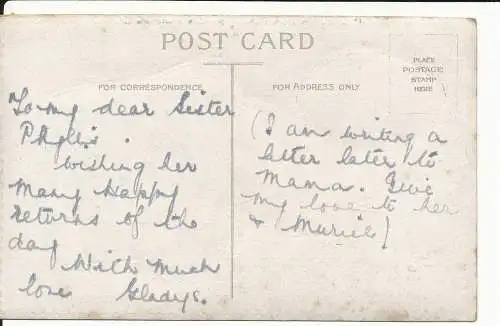 POST CARD
FOR CORRESPONDENCE
To my dear Sister
Phyllis.
wishing her
Many Happy
Returns of the
day
With much
love Gladys.
FOR ADDRESS ONLY.
PLACE
POSTAGE
STAMP
HERE
(I am writing a
letter later to
Mama. Give
my love to her
& Muriel)